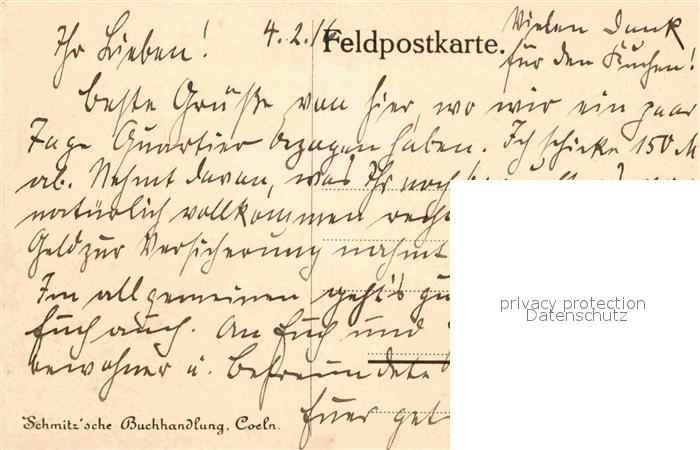 4.2.16
Feldpostkarte.
Vielen Dank
für den Kuchen!
Ihr Lieben!
Beste Grüße von hier, wo wir ein paar
Tage Quartier bezogen haben. Ich schicke 150 M
ab. Nehmt davon, was Ihr noch
natürlich vollkommen recht
Geld zur Versicherung nahmt
Im allgemeinen geht's gu
Euch auch. An Euch und
bewohner u. Befreundete
Euer get
Schmitz'sche Buchhandlung, Coeln.
privacy protection
Datenschutz